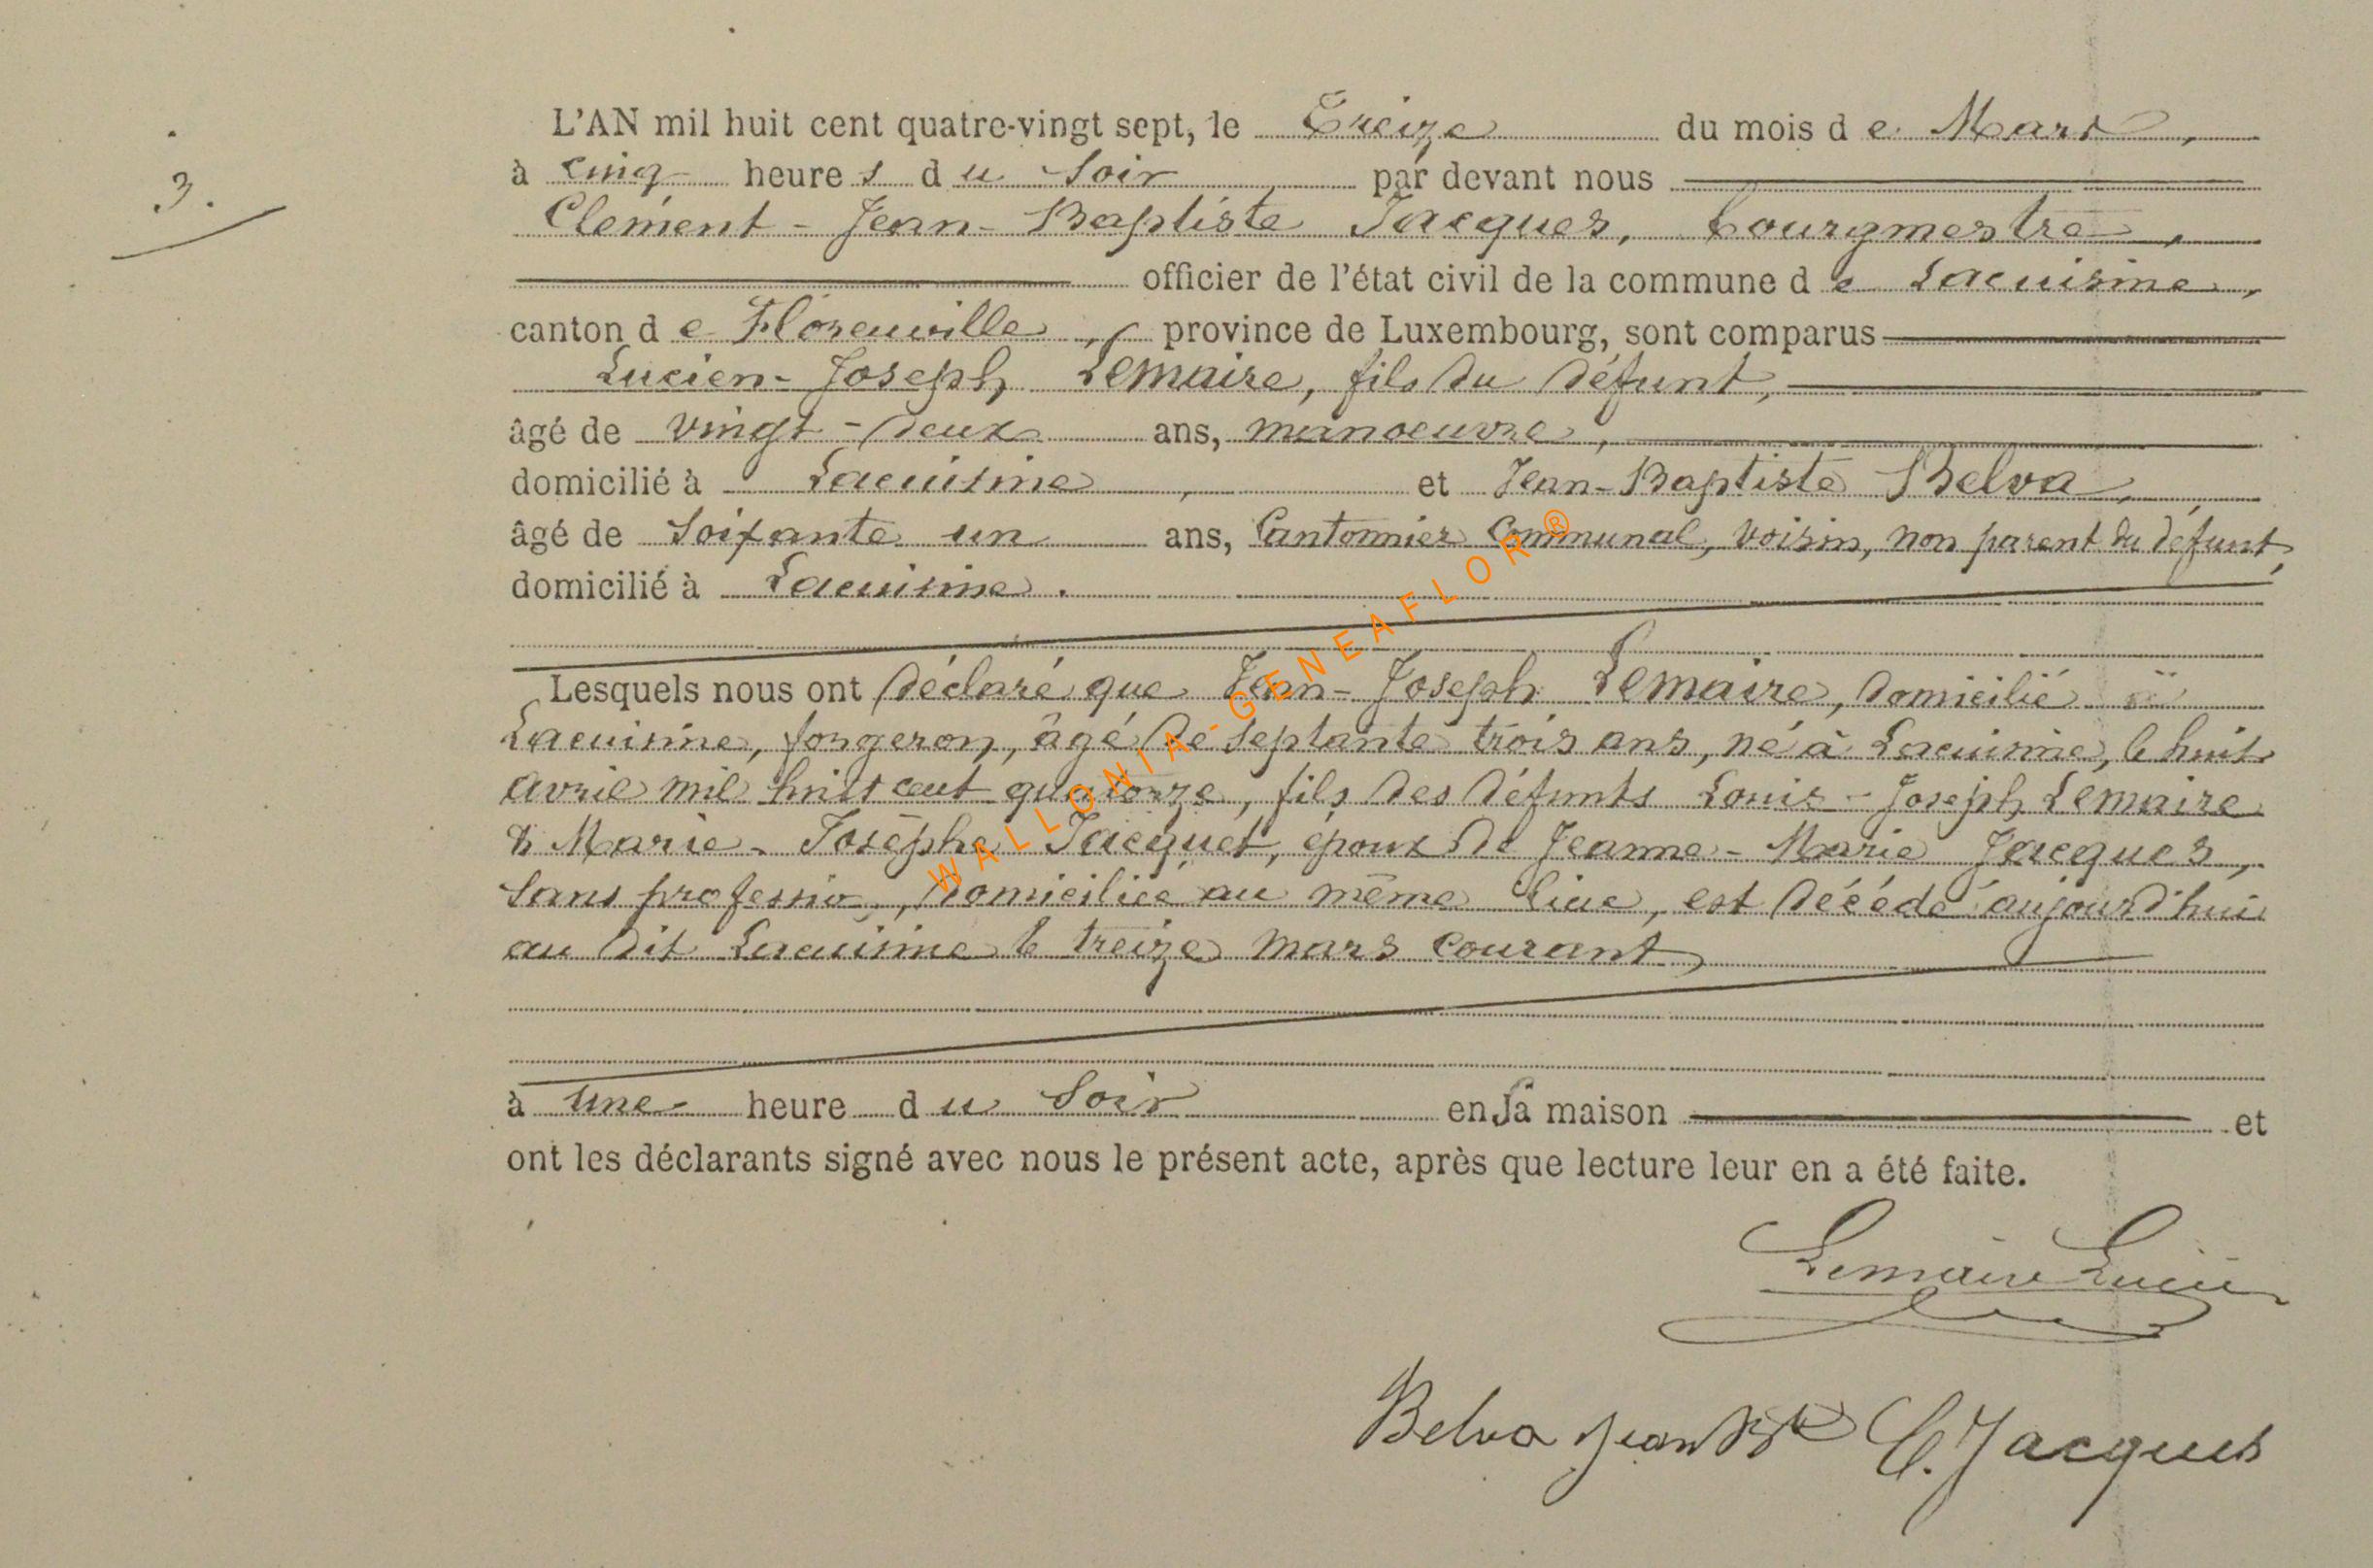 L'AN mil huit cent quatre-vingt sept, le Treize du mois de Mars,
3.
à cinq heures du soir par devant nous
Clement-Jean-Baptiste Jacques, bourgmestre,
officier de l'état civil de la commune de Lacuisine,
canton de Florenville, province de Luxembourg, sont comparus
Lucien-Joseph Lemaire, fils du défunt,
âgé de vingt-deux ans, manoeuvre,
domicilié à Lacuisine, et Jean-Baptiste Belva,
âgé de soixante un ans, Cantonnier Communal, voisin, non parent du défunt,
domicilié à Lacuisine.
Lesquels nous ont déclaré que Jean-Joseph Lemaire, domicilié à
Lacuisine, forgeron, âgé de septante trois ans, né à Lacuisine, le huit
avril mil huit cent quatorze, fils des défunts Louis-Joseph Lemaire
& Marie-Josèphe Jacquet, époux de Jeanne-Marie Jacques,
sans profession, domiciliée au même lieu, est décédé aujourd'hui
au dit Lacuisine le treize mars courant
à une heure du soir en sa maison et
ont les déclarants signé avec nous le présent acte, après que lecture leur en a été faite.
Lemaire Lucien
Belva Jean Bte C. Jacques
WALLONIA-GENEAFLOR®